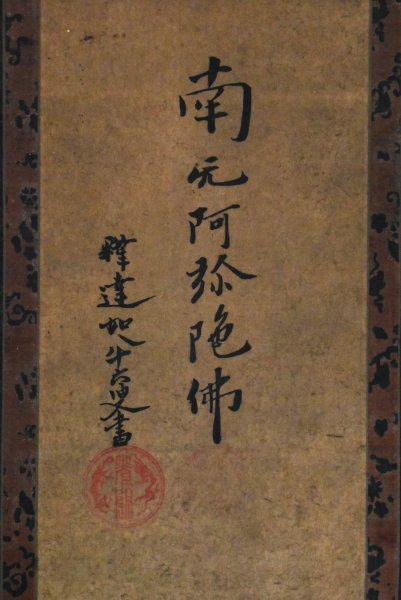 南无阿弥陁佛
釋達如八十六叟書